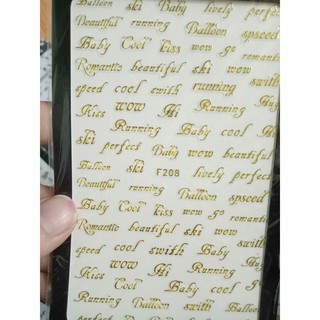 Balloon ski Balloon lively perfect
Beautiful running
Baby Cool kiss wow go spseed
Romantic beautiful ski romantic
speed cool swith running swith
Kiss wow Hi Running Hug
Running Baby cool
ski perfect Baby wow beautiful
Balloon ski F208 lively perfect
Beautiful running Balloon spseed
Baby Cool kiss wow go romantic
Romantic beautiful ski swith
speed cool swith Baby Hug
Kiss wow Hi Running
Cool beautiful
Running Balloon swith Balloon